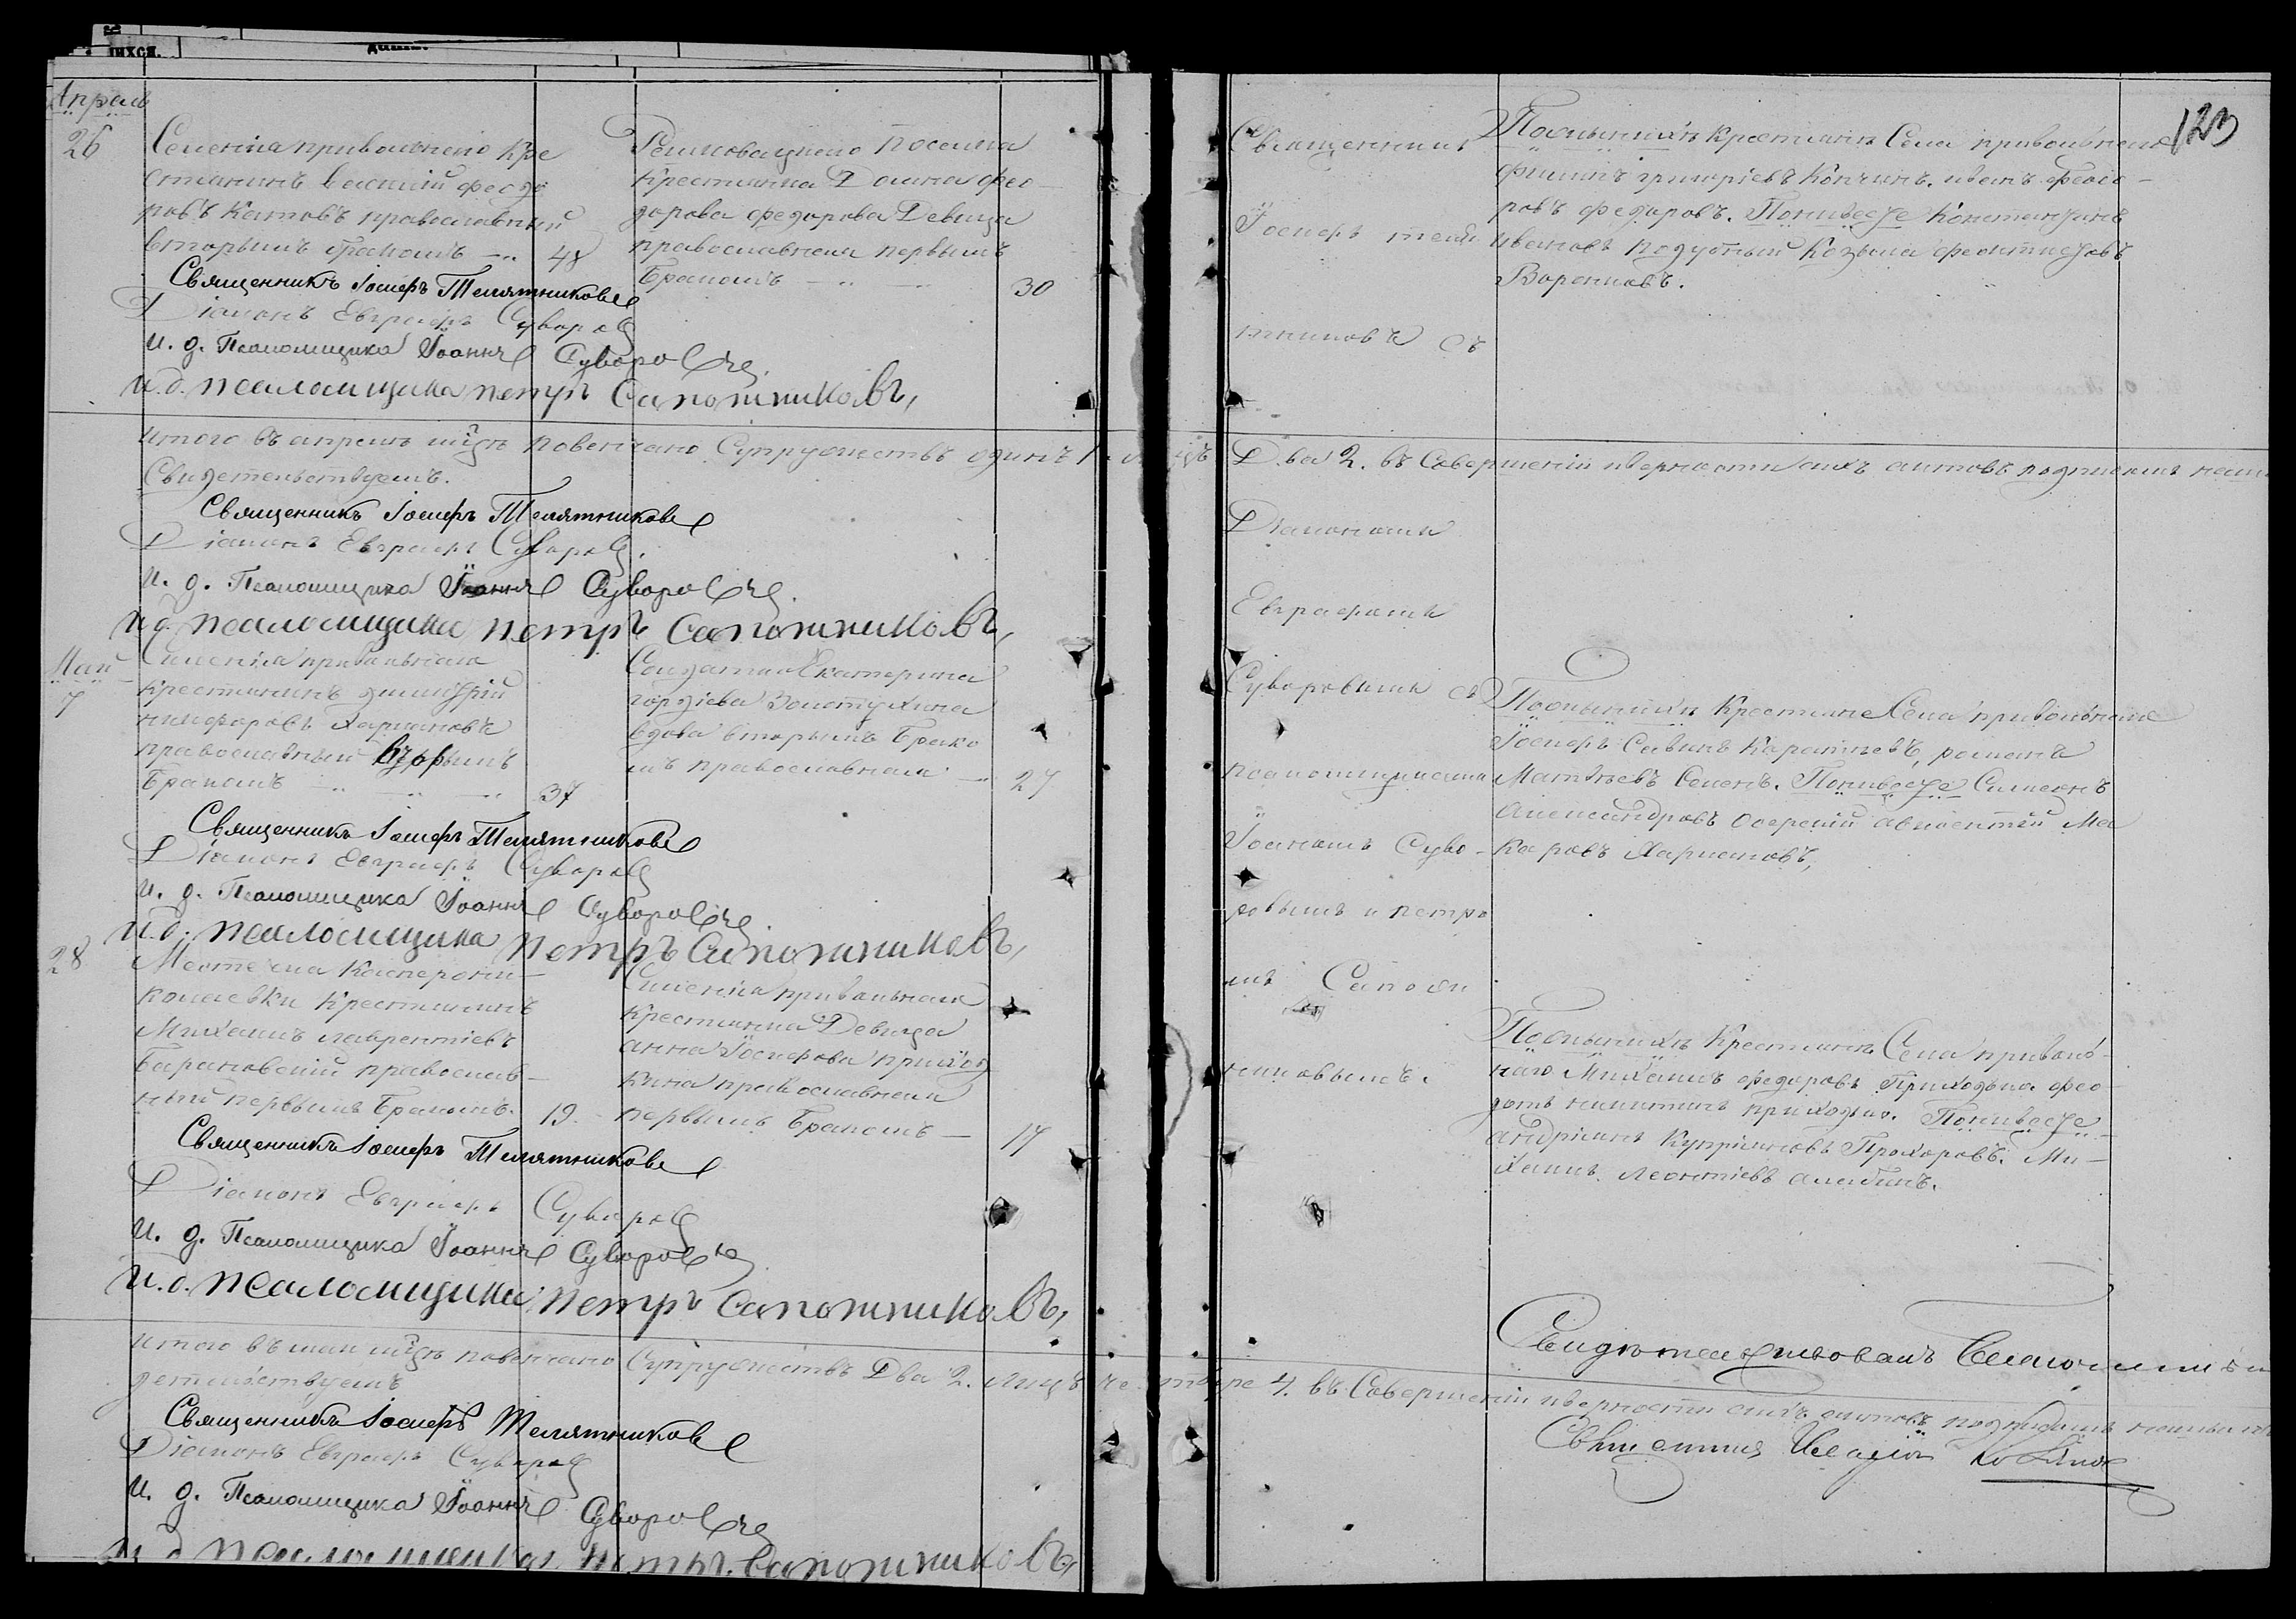 Апрель
26
Селенія привольнаго Кре
стьянинъ Василій Федо
ровъ Катовъ православный
вторымъ бракомъ 48
Священникъ Іосифъ Телятниковъ
Діаконъ Евграфъ Суворовъ
И. д. Псаломщика Іоаннъ Суворовъ
И. д. псаломщика петръ Сапожниковъ,
посёлка
Крестьянка Домна Фео
дорова Федорова Девица
православная первымъ
бракомъ 30
итого въ апреле мцѣ повенчано Супружествъ одинъ 1.
Свидетельствуемъ.
Священникъ Іосифъ Телятниковъ
Діаконъ Евграфъ Суворовъ.
И. д. Псаломщика Іоаннъ Суворовъ.
И д. псаломщика петръ Сапожниковъ,
Май
7
Селенія привольнаго
крестьянинъ димитрій
никифоровъ Харламовъ
православный вторымъ
бракомъ 37
Солдатка Екатерина
гордіева Золотухина
вдова вторымъ брако
мъ православная 27
Священникъ Іосифъ Телятниковъ
Діаконъ Евграфъ Суворовъ
И. д. Псаломщика Іоаннъ Суворовъ
И. д. псаломщика петръ Сапожниковъ,
28
Местечка Каперони
колаевки Крестьянинъ
Михаилъ лаврентіевъ
Барановскій православ-
ный первымъ бракомъ. 19.
Селенія привольнаго
крестьянка Девица
анна Іосифова приход
кина православная
первымъ бракомъ 17
Священникъ Іосифъ Телятниковъ
Діаконъ Евграфъ Суворовъ
И. д. Псаломщика Іоаннъ Суворовъ
И. д. псаломщика петръ Сапожниковъ,
итого въ маи мцѣ повенчано Супружествъ Два 2. лицъ
детельствуемъ
Священникъ Іосифъ Телятниковъ
Діаконъ Евграфъ Суворовъ
И. д. Псаломщика Іоаннъ Суворовъ
И д псаломщика петръ Сапожниковъ,
123
Священникъ
Іосифъ теля
тниковъ съ
По женихѣ крестьяне Села привольнаго
филипъ григоріевъ Кончинъ. иванъ Феодо-
ровъ федоровъ. По невесте Константинъ
ивановъ поддубный Козьма феоктистовъ
Воронковъ.
Два 2. въ Совершеніи и верности сихъ актовъ подписомъ
Діакономъ
Евграфомъ
Суворовымъ съ
псаломщиками
Іоанномъ Суво-
ровымъ и петро
мъ Сапож
никовымъ.
По женихѣ Крестьяне Села привольнаго
Іосифъ Савинъ Каратаевъ, романъ
Матвеевъ Семенъ. По невесте Симеонъ
Александровъ авксентій Ма
каровъ Харламовъ,
По женихѣ Крестьяне Села приволь-
наго Михаилъ федоровъ Приходько фео
дотъ никитинъ приходько. По невесте
андріанъ Купріяновъ Прохоровъ. Ми-
хаилъ леонтіевъ алабинъ.
Свидетельствовалъ Благочинный
4. въ Совершеніи и верности сихъ актовъ
Священникъ